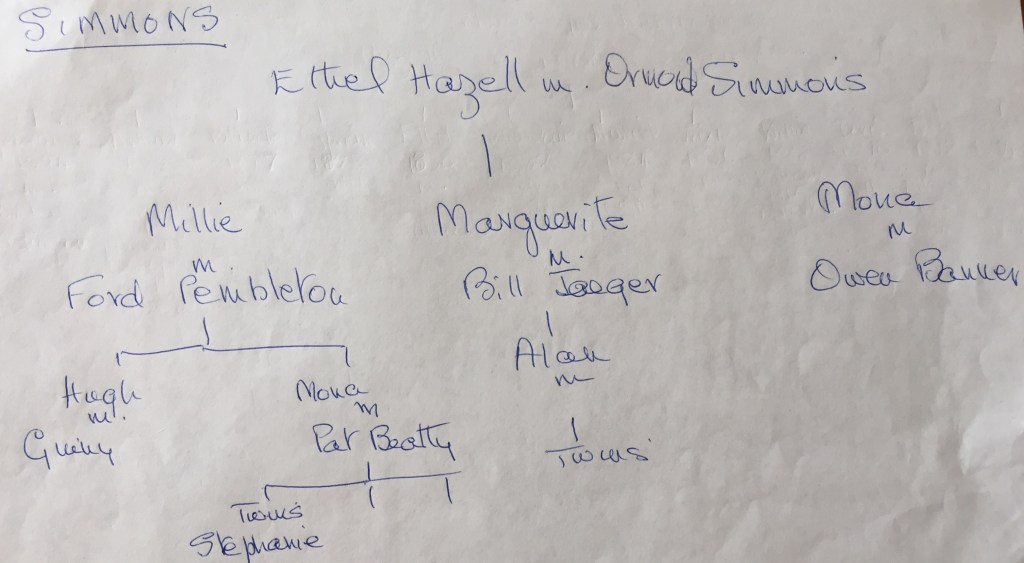 SIMMONS
Ethel Hazell m. Ormond Simmons
Millie
Marguerite
Mona
m.
m.
m
Ford Pembleton
Bill Jaeger
Owen Banner
Alan
Hugh
Mona
m
m.
m
Pat Beatty
Twins
Twins
Stephanie